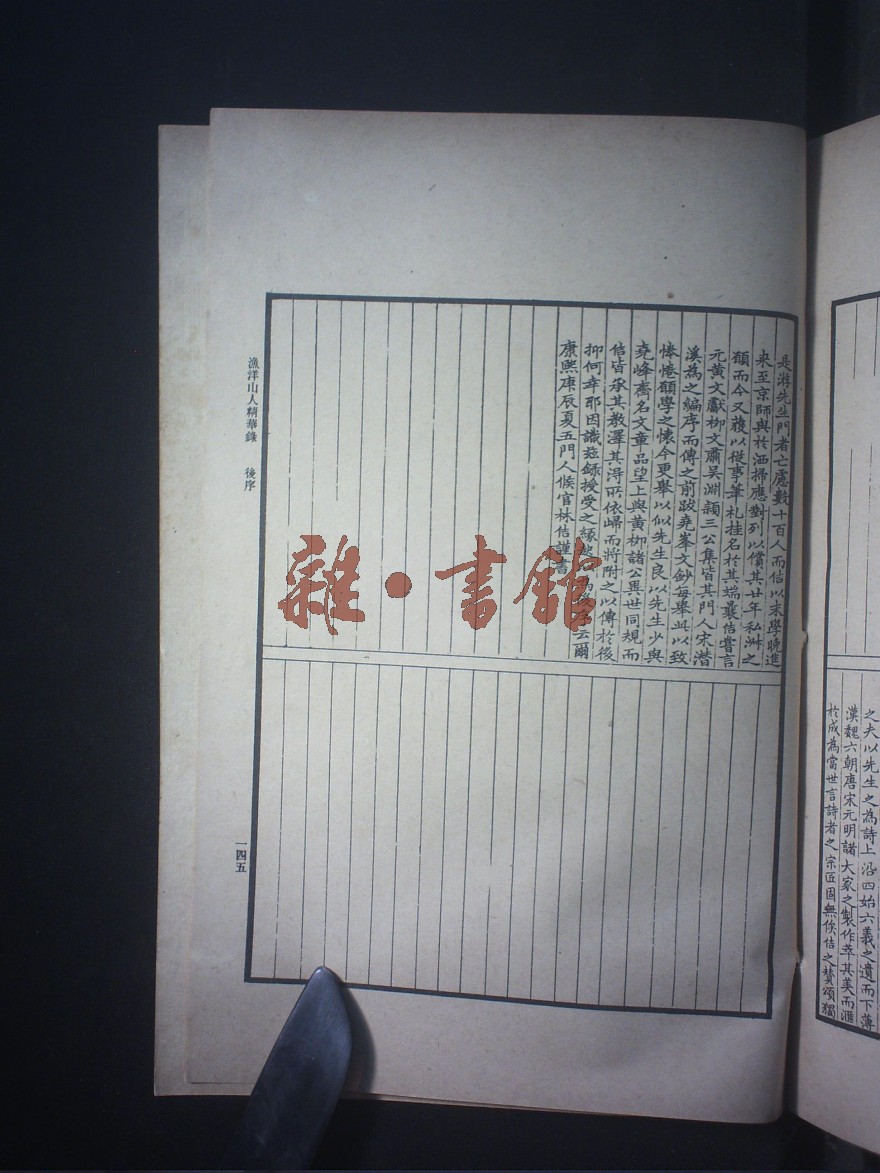 之夫以先生之為詩上沿四始六義之遺而下薄
漢魏六朝唐宋元明諸大家之製作萃其美而滙
於成為當世言詩者之宗匠固無俟佶之贊頌獨
是游先生門者亡慮數十百人而佶以末學晚進
来至京師與於洒掃應對列以償其廿年私淋之
願而今又獲以從事筆札挂名於其端曩佶嘗言
元黄文獻栁文肅吴淵穎三公集皆其門人宋潜
溪為之編序而傳之前跋堯峯文鈔每舉此以致
惓惓願學之懷今更舉以似先生良以先生少與
堯峰齊名文章品望上與黄栁諸公異世同規而
佶皆承其教澤其淂所依歸而將附之以傳於後
抑何幸耶因識兹錄授受之緣後序云爾
康熙庚辰夏五門人候官林佶謹書
漁洋山人精華錄 後序
一四五
雜・書館